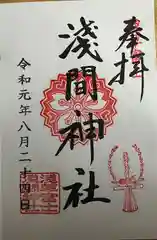 奉拝
淺間神社
令和元年八月二十四日